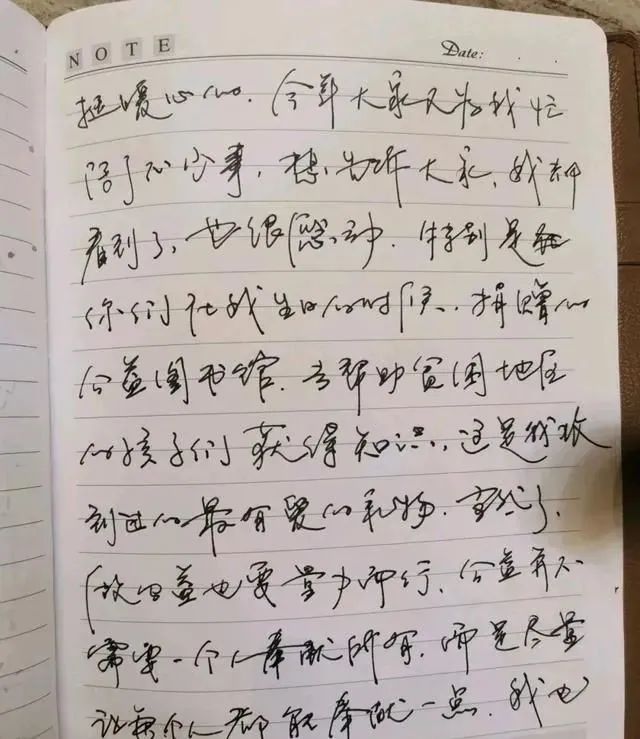 NOTE Date:
挺暖心的. 今年大家又为我忙
了不少事, 想告诉大家, 我都
看到了, 也很感动. 特别是在
你们在我生日的时候, 捐赠的
公益图书馆. 去帮助贫困地区
的孩子们获得知识, 这是我收
到过的最有爱的礼物. 当然了,
做公益也要量力而行, 公益并不
需要一个人奉献所有, 而是尽量
让每个人都能奉献一点. 我也